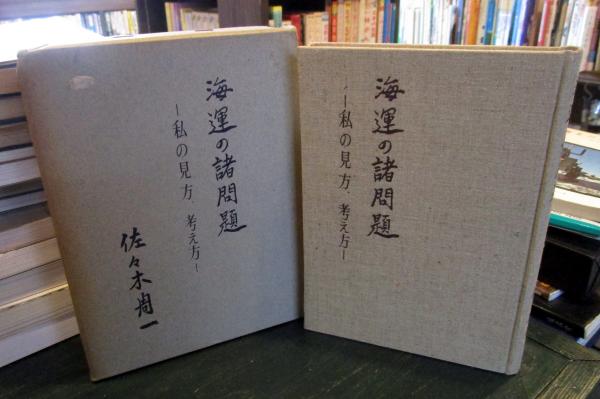 海運の諸問題
―私の見方、考え方―
佐々木周一
海運の諸問題
―私の見方、考え方―